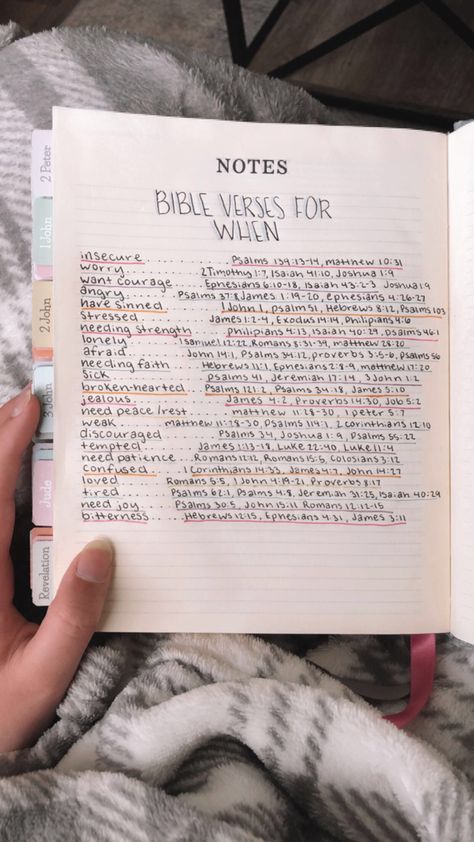 NOTES
BIBLE VERSES FOR
WHEN
insecure.............Psalms 139:13-14, matthew 10:31
worry.............2 Timothy 1:7, Isaiah 41:10, Joshua 1:9
want courage.......Ephesians 6:10-18, Isaiah 43:2-3 Joshua 1:9
angry..........Psalms 37:8 James 1:19-20, ephesians 4:26-27
have sinned..........1 John 1, psalm 51, Hebrews 8:12, Psalms 103
stressed..........James 1:2-4, Exodus 14:14, Philipians 4:6
needing strength......philipians 4:13, Isaiah 40:29, psalms 46:1
lonely..........1 Samuel 12:22, Romans 8:31-39, matthew 28:20
afraid..........John 14:1, Psalms 34:12, proverbs 3:5-6, Psalms 56
needing faith.......Hebrews 11:1, Ephesians 2:8-9, matthew 17:20
sick..........psalms 41, Jeremiah 17:14, 3 John 1:2
broken-hearted...Psalms 121:2 Psalms 34:18, James 5:10
jealous..........James 4:2, Proverbs 14:30, Job 5:2
need peace/rest...matthew 11:28-30, 1 peter 5:7
weak.....matthew 11:28-30, Psalms 114:1, 2 Corinthians 12:10
discouraged..........Psalms 34, Joshua 1:9, Psalms 55:22
tempted..........James 1:13-18, Luke 22:40, Luke 11:4
need patience...Romans 12:12, Romans 15:5, Colosians 3:12
confused.....1 Corinthians 14:33, James 4:7, John 14:27
loved..........Romans 5:5, 1 John 4:19-21, Proverbs 8:17
tired.......Psalms 62:1, Psalms 4:8, Jeremiah 31:25, Isaiah 40:29
need joy.....Psalms 30:5, John 15:11 Romans 12:12-15
bitterness.....Hebrews 12:15, Ephesians 4:31, James 3:11
2 Peter
1 John
2 John
3 John
Jude
Revelation